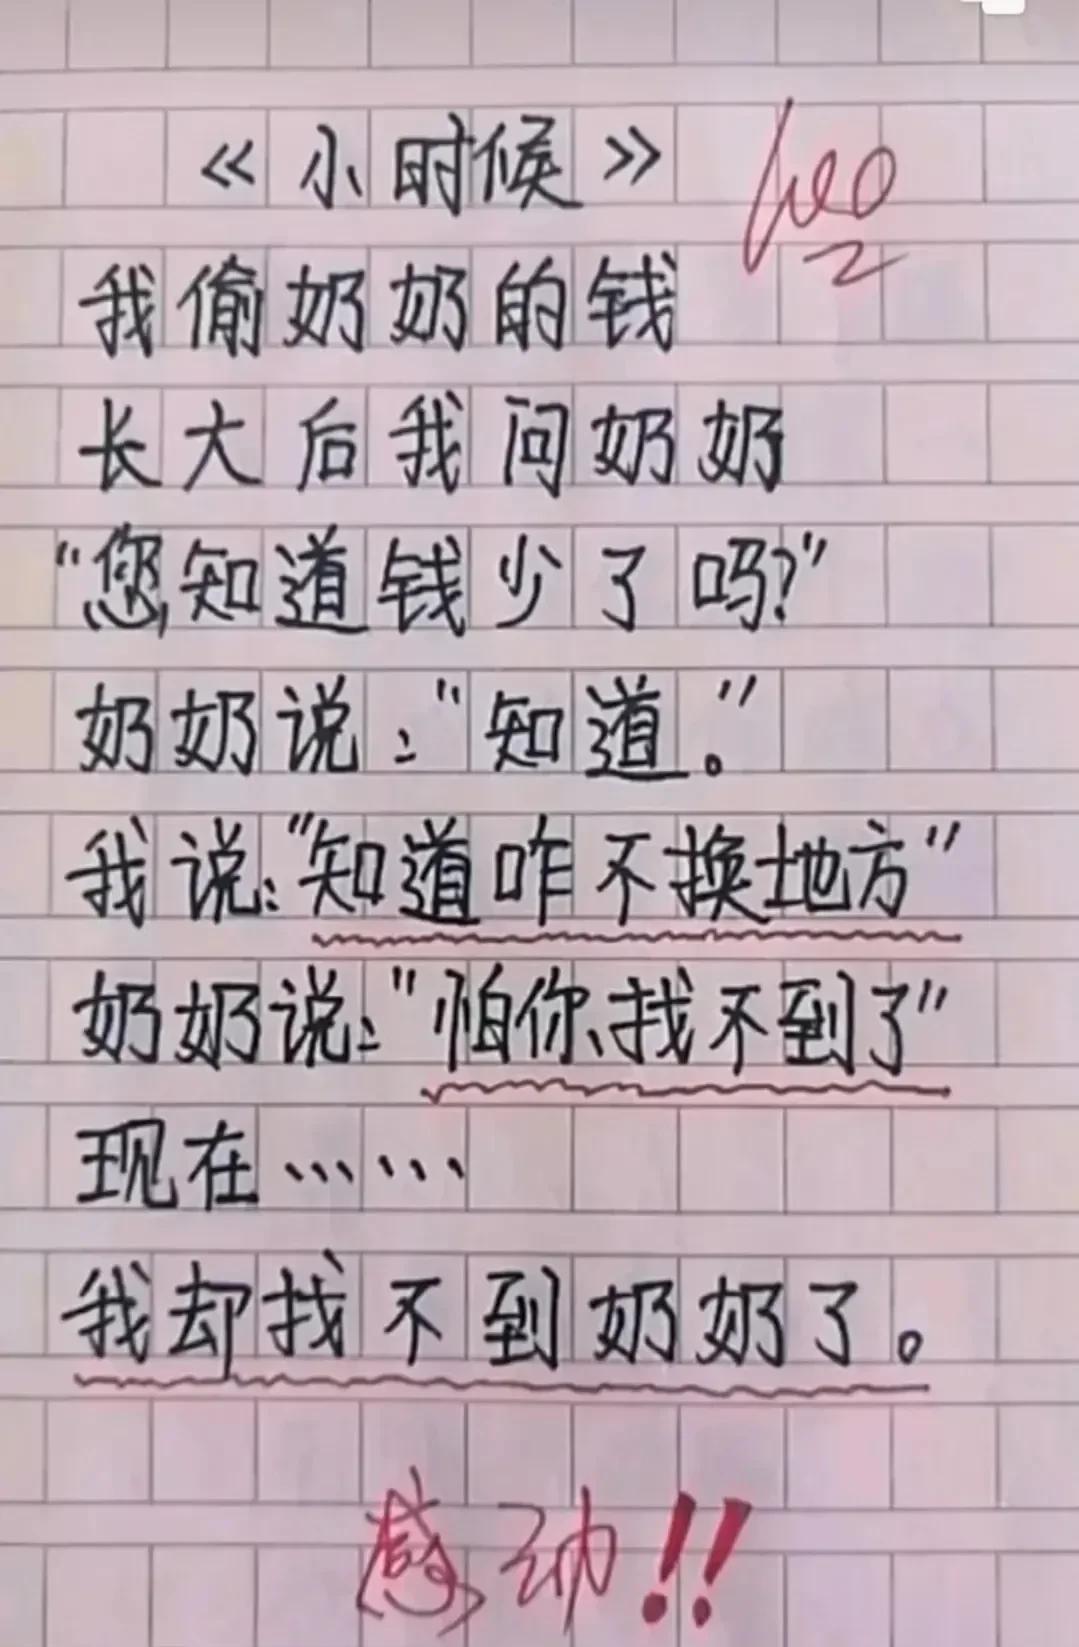 《小时候》
我偷奶奶的钱
长大后我问奶奶
“您知道钱少了吗?”
奶奶说:“知道。”
我说:“知道咋不换地方”
奶奶说:“怕你找不到了”
现在……
我却找不到奶奶了。
感动!!